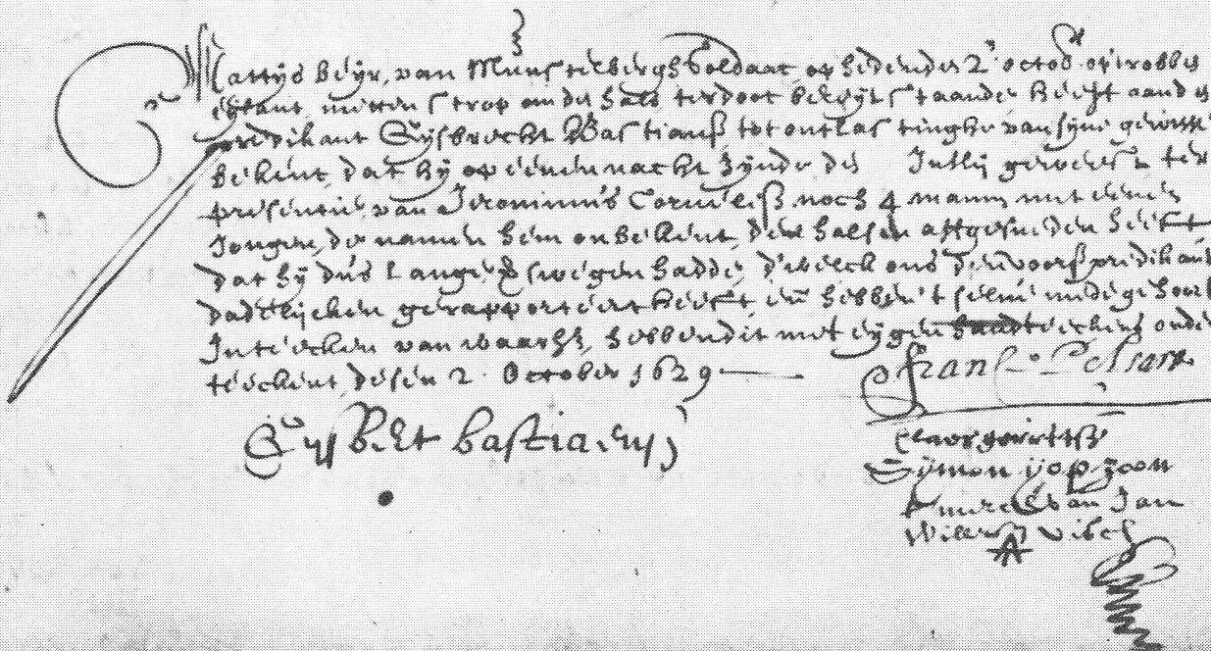 Mattys beijr, van Munsterbergh Soldaat, op heden den 2e octob op robben
eijlant, metten strop om den hals ter doot bereijt staande heeft aan den
predikant Gijsbrecht Bastiansz tot ontlastinghe van syne gewisse
bekent, dat hij op eenen nacht zijnde den Iullij geweest ter
presentie van Ieronimus Cornelisz noch 4 mann met eenen
Jongen, de namen hem onbekent, den halsen affgesneden heeft
dat hij dus lange geswegen hadde, d'welck ons den voorsz predikant
dadelijcken gerapporteert heeft, en hebben 't selve mede gehoort
In teecken van waarh, hebben dit met eijgen handteekens onder
teeckent, desen 2 October 1629
Fransco Pelsart
Gysbert bastiaensz
claes gerritsz
Symon yopzoon
t merck van Jan
Willemsz visch